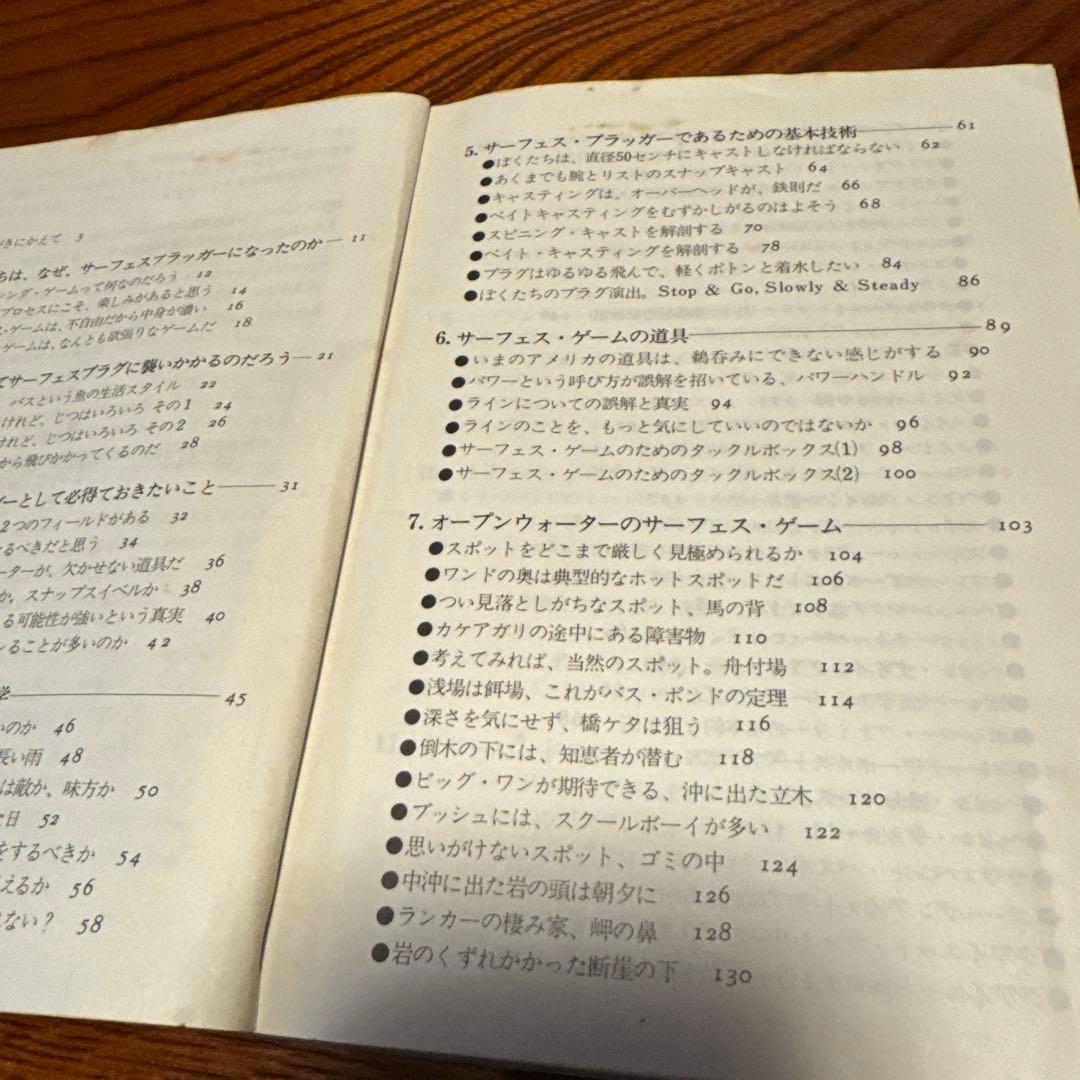 がきにかえて 3
ちは、なぜ、サーフェスプラッガーになったのか 11
シング・ゲームって何なのだろう 12
プロセスにこそ、楽しみがあると思う 14
ス・ゲームは、不自由だから中身が濃い 16
ゲームは、なんとも欲張りなゲームだ 18
てサーフェスプラグに襲いかかるのだろう 21
、バスという魚の生活スタイル 22
けれど、じつはいろいろ その1 24
けれど、じつはいろいろ その2 26
から飛びかかってくるのだ 28
ガーとして必得ておきたいこと 31
2つのフィールドがある 32
なるべきだと思う 34
ーターが、欠かせない道具だ 36
か、スナップスイベルか 38
る可能性が強いという真実 40
いることが多いのか 42
学 45
いのか 46
長い雨 48
は敵か、味方か 50
な日 52
をするべきか 54
えるか 56
れない? 58
5. サーフェス・プラッガーであるための基本技術 61
●ぼくたちは、直径50センチにキャストしなければならない 62
●あくまでも腕とリストのスナップキャスト 64
●キャスティングは、オーバーヘッドが、鉄則だ 66
●ベイトキャスティングをむずかしがるのはよそう 68
●スピニング・キャストを解剖する 70
●ベイト・キャスティングを解剖する 78
●プラグはゆるゆる飛んで、軽くポトンと着水したい 84
●ぼくたちのプラグ演出。Stop & Go, Slowly & Steady 86
6. サーフェス・ゲームの道具 89
●いまのアメリカの道具は、鵜呑みにできない感じがする 90
●パワーという呼び方が誤解を招いている、パワーハンドル 92
●ラインについての誤解と真実 94
●ラインのことを、もっと気にしていいのではないか 96
●サーフェス・ゲームのためのタックルボックス(1) 98
●サーフェス・ゲームのためのタックルボックス(2) 100
7. オープンウォーターのサーフェス・ゲーム 103
●スポットをどこまで厳しく見極められるか 104
●ワンドの奥は典型的なホットスポットだ 106
●つい見落としがちなスポット、馬の背 108
●カケアガリの途中にある障害物 110
●考えてみれば、当然のスポット。舟付場 112
●浅場は餌場、これがバス・ポンドの定理 114
●深さを気にせず、橋ケタは狙う 116
●倒木の下には、知恵者が潜む 118
●ビッグ・ワンが期待できる、沖に出た立木 120
●ブッシュには、スクールボーイが多い 122
●思いがけないスポット、ゴミの中 124
●中沖に出た岩の頭は朝夕に 126
●ランカーの棲み家、岬の鼻 128
●岩のくずれかかった断崖の下 130